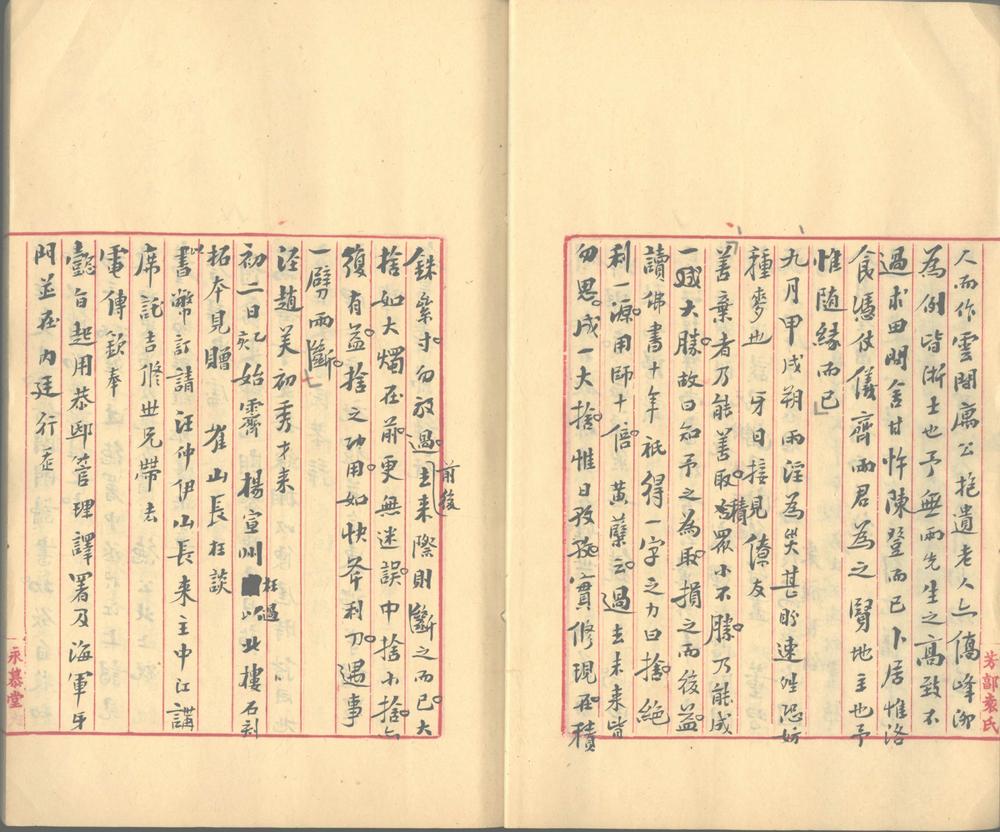 人而作雲間寓公抱遺老人亦僑峰泖
為例皆浙士也予無兩先生之高致不
過求田問舍甘忤陳登而已卜居惟洛
食憑仗儀齊兩君為之賢地主也予
惟隨緣而已
九月甲戌朔雨淫為災甚盼速姓恐妨
種麥也 牙日接見僚友
善棄者乃能善取積眾小不勝乃能成
一大勝故曰知予之為取損之而後益
讀佛書十年祇得一字之力曰捨絕
利一源用師十倍黃蘗云過去未來皆
勿思成一大捨惟日孜孜實修現在積
芳郭袁氏
銖絫寸勿放過去來前後際則斷之而已大
捨如大燭在前更無迷誤中捨小捨亦
復有益捨之功用如快斧利刀遇事
一劈兩斷
涇趙芙初秀才來
初二日記始霽 楊宣州枉過以北樓石刻
拓本見贈 崔山長枉談
以書幣訂請汪仲伊山長來主中江講
席託吉脩世兄帶去
電傳欽奉
懿旨起用恭邸管理譯署及海軍牙
門並在內廷行走
永慕堂